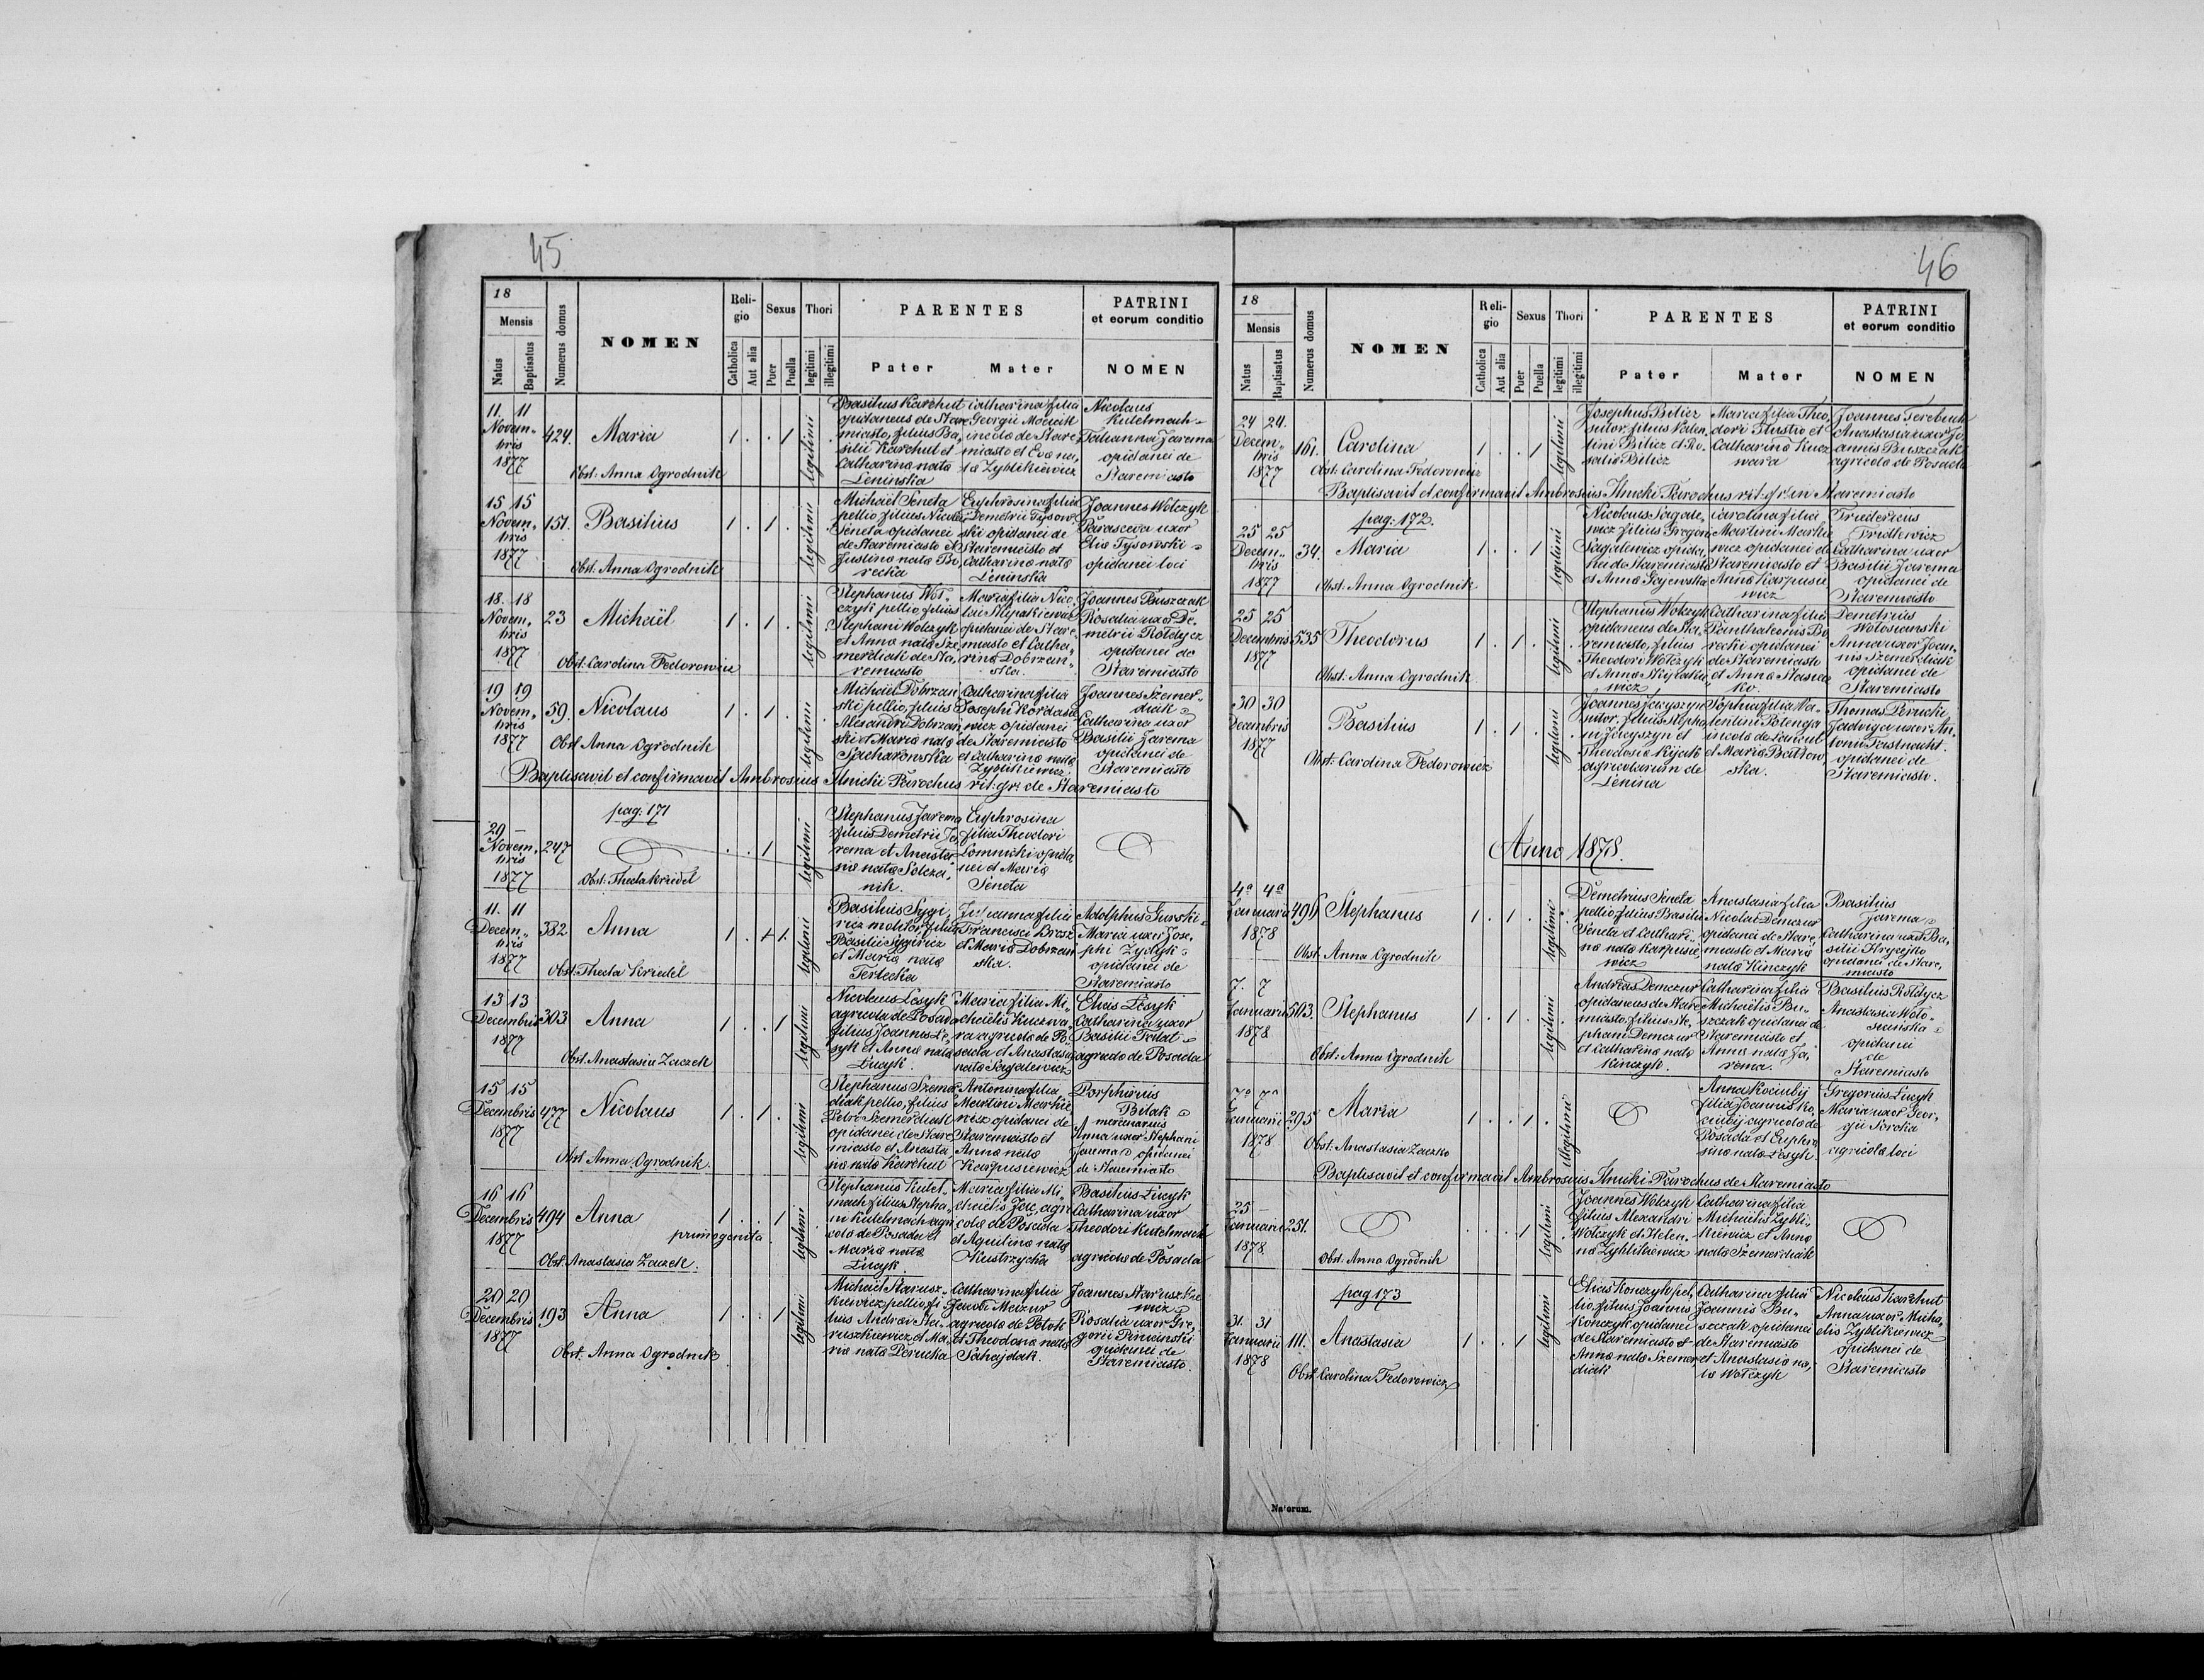 45
18
Mensis
Natus
Baptisatus
Numerus domus
NOMEN
Reli-
gio
Catholica
Aut alia
Sexus
Puer
Puella
Thori
legitimi
illegitimi
PARENTES
Pater
Mater
PATRINI
et eorum conditio
NOMEN
11. 11
Novem-
bris
1877
424.
Maria
Obst: Anna Ogrodnik
1 . . 1
legitimi
Basilius Karchut
opidaneus de Stare
miasto, filius Ba,
silii Karchut et
Catharina nata
Leninska
Catharina filia
Georgii Macuik
incola de Stare
miasto et Eva na,
ta Zyblikiewicz
Nicolaus
Kutelmach
Tatianna Jarema
opidanei de
Staremiasto
15 15
Novem,
bris
1877
151.
Basilius
Obst: Anna Ogrodnik
1 . 1 .
legitimi
Michael Seneta
pellio filius Nicolai
Seneta opidanei
de Staremiasto et
Justina nata Bi,
recka
Euphrosina filia
Demetrii Tysow
ski opidanei de
Staremiasto et
Catharina nata
Leninska
Joannes Wolczyk
Parasceva uxor
Elia Tysowski
opidanei loci
18. 18
Novem,
bris
1877
23
Michaël
Obst: Carolina Fedorowicz
1 . 1 .
legitimi
Stephanus Wol-
czyk pellio, filius
Stephani Wolczyk
et Anna nata Sze
merdiak de Sta,
remiasto
Maria filia Nico,
lai Slepakiewicz
opidanei de Stare
miasto et Catha,
rina Dobrzan-
ska.
Joannes Buszczak
Rosalia uxor De,
metrii Roldycz
opidanei de
Staremiasto
19 19
Novem,
bris
1877
59.
Nicolaus
Obst Anna Ogrodnik
1 . 1 .
legitimi
Michael Dobrzań
ski pellio, filius
Alexandri Dobrzań
ski et Maria nata
Sacharowska
Catharina filia
Josephi Kordasie
wicz opidanei
de Staremiasto
et Catharina nata
Zyblikiewicz
Joannes Szemer-
diak
Catharina uxor
Basilii Jarema
opidanei de
Staremiasto
Baptisavit et confirmavit Ambrosius Ilnicki Parochus rit: gr: de Staremiasto
pag: 171
29 –
Novem,
bris
1877
247
Obst: Thecla Kriedel
. . 1
legitimi
Stephanus Jarema
filius Demetrii Ja,
rema et Anasta,
sia nata Solcza,
nik.
Euphrosina
filia Theodori
Lomnicki opida
nei et Maria
Seneta
11. 11
Decem,
bris
1877
382
Anna
Obst: Thecla Kriedel
legitimi
Basilius Sygi,
ricz molitor, filius
Basilii Sygiricz
et Maria nata
Terlecka
Julianna filia
Francisci Brosz
et Maria Dobrzań
ska.
Adolphus Gurski
Maria uxor Jose,
phi Zydyk
opidanei de
Staremiasto
13 13
Decembris
1877
303
Anna
Obst: Anastasia Zaczek
1 . . 1
legitimi
Nicolaus Lesyk
agricola de Posada
filius Joannis Le,
syk et Anna nata
Lucyk.
Maria filia Mi,
chaelis Kuczwa,
ra agricola de Po,
sada et Anastasia
nata Sagalewicz
Elias Lesyk
Catharina uxor
Basilii Fatat
agricolo de Posada
15 15
Decembris
1877
477
Nicolaus
Obst Anna Ogrodnik.
1 . 1 .
legitimi
Stephanus Szemer
diak pellio, filius
Petri Szemerdiak
opidanei de Stare
miasto et Anasta,
sia nata Karchut
Antonina filia
Martini Markie
wicz opidanei de
Staremiasto et
Anna nata
Karpusiewicz
Porphirius
Bilak
mercenarius
Anna uxor Stephani
Jarema opidanei
de Staremiasto
16 16
Decembris
1877
494
Anna
primogenita
Obst: Anastasia Zaczek.
1 . . 1
legitimi
Stephanus Kutel-
mach filius Stepha,
ni Kutelmach agri
cola de Posada et
Maria nata
Lucyk.
Maria filia Mi,
chaelis Joic, agri
cola de Posada
et Aquilina nata
Kustrzycka
Basilius Lucyk
Catharina uxor
Theodori Kutelmach
agricolo de Posada
20 20
Decembris
1877
193
Anna
Obst. Anna Ogrodnik
1 . . 1
legitimi
Michael Starusz-
kiewicz pellio, fi
lius Andrei Sta-
ruszkiewicz et Ma,
ria nata Perucka
Catharina filia
Jacobi Mazur
agricola de Potok
et Theodora nata
Sahajdak.
Joannes Staruszkie
wicz
Rosalia uxor Gre,
gorii Piniański
opidanei de
Staremiasto.
46
18
Mensis
Natus
Baptisatus
Numerus domus
NOMEN
Reli-
gio
Catholica
Aut alia
Sexus
Puer
Puella
Thori
legitimi
illegitimi
PARENTES
Pater
Mater
PATRINI
et eorum conditio
NOMEN
24 24.
Decem,
bris
1877
161.
Carolina
Obst: Carolina Fedorowicz
1 . . 1
legitimi
Josephus Bilicz
sutor, filius Valen
tini Bilicz et Ro,
salia Bilicz
Maria filia Theo
dori Tlustio et
Catharina Kucz
wara
Joannes Terebuch
Anastasia uxor Jo,
annis Buszczak
agricolo de Posada
Baptisavit et confirmavit Ambrosius Ilnicki Parochus rit: gr: in Staremiasto
pag: 172.
25 25
Decem,
bris
1877
34.
Maria
Obst: Anna Ogrodnik
1 . . 1
legitimi
Nicolaus Sagale,
wicz filius Gregorii
Sagalewicz opida,
nei de Staremiasto
et Anna Gajewska
Carolina filia
Martini Markie
wicz opidanei de
Staremiasto et
Anna Karpusie
wicz
Fridericus
Fridkiewicz
Catharina uxor
Basilii Jarema
opidanei de
Staremiasto
25 25
Decembris
1877
535
Theodorus
Obst: Anna Ogrodnik
1 . 1 .
legitimi
Stephanus Wolczyk
opidaneus de Sta,
remiasto, filius
Theodori Wolczyk
et Anna Skiylakie
wicz
Catharina filia
Panthaleonis Bi
recki opidanei
de Staremiasto
et Anna Stasiec
ko.
Demetrius
Wolosianski
Anna uxor Joan,
nis Szemerdiak
opidanei de
Staremiasto
30 30
Decembris
1877
Basilius
Obst: Carolina Fedorowicz
1 . 1 .
legitimi
Joannes Jacyszyn
sutor, filius Stepha
ni Jacyszyn et
Theodosia Kijak
agricolarum de
Lenina
Sophia filia Va-
lentini Potenga
incola de Lancut
et Maria Battow
ska.
Thomas Perucki
Jadviga uxor An,
tonii Fastnacht.
opidanei de
Staremiasto.
Anno 1878.
4a 4a
Januarii
1878
Stephanus
Obst: Anna Ogrodnik
1 . 1 .
legitimi
Demetrius Seneta
pellio filius Basilii
Seneta et Cathari-
na nata Karpusie,
wicz
Anastasia filia
Nicolai Demczur
opidanei de Stare,
miasto et Maria
nata Kinczyk
Basilius
Jarema
Catharina uxor Ba,
silii Hrycejko
opidanei de Stare,
miasto
7. 7
Januarii
1878
503.
Stephanus
Obst: Anna Ogrodnik
1 . 1 .
legitimi
Andreas Demczur
opidaneus de Stare
miasto, filius Ste,
phani Demczur
et Catharina nata
Kinczyk.
Catharina filia
Michaelis Bu-
szczak opidanei de
Staremiasto et
Anna nata Ja,
rema.
Basilius Roldycz
Anastasia Wolo-
sianska
opidanei
de
Staremiasto
7a 7a
Januarii
1878
295
Maria
Obst: Anastasia Zaczko
1 . . 1 .
illegitimi
Anna Kociubij
filia Joannis Ko,
ciubij agricola de
Posada et Euphro
sina nata Lesyk.
Gregorius Lucyk
Maria uxor Geor-
gii Soroka
agricolo loci
Baptisavit et confirmavit Ambrosius Ilnicki Parochus de Staremiasto
25 –
Januarii
1878.
251.
Obst: Anna Ogrodnik
. . . 1
legitimi
Joannes Wolczyk
filius Alexandri
Wolczyk et Helen-
na Zyblikiewicz
Catharina filia
Michaelis Zybli-
kiewicz et Anna
nata Szemerdiak
pag 173
31. 31
Januarii
1878
111.
Anastasia
Obst Carolina Fedorowicz
1 . . 1
legitimi
Elias Konczyk pel,
lio, filius Joannis
Konczyk opidanei
de Staremiasto et
Anna nata Szemer
diak
Catharina filia
Joannis Bu-
szczak opidanei
de Staremiasto
et Anastasia na,
ta Wolczyk
Nicolaus Karchut
Anna uxor Micha,
elis Zyblikiewicz
opidanei de
Staremiasto
Natorum.